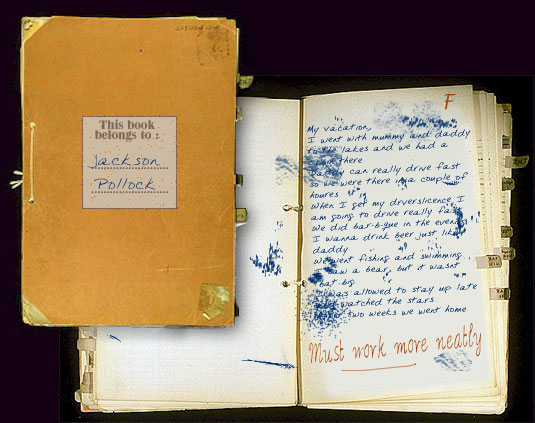 This book
belongs to :
Jackson
Pollock
F
My vacation,
I went with mummy and daddy
lakes and we had a
there
Daddy can really drive fast
so we were there in a couple of
houres
When I get my drverslicence I
am going to drive really
We did bar-b-que in the
I wanna drink beer just like
daddy
We went fishing and swimming
saw a bear, but it wasnt
big
was allowed to stay up late
watched the stars
two weeks we went home
Must work more neatly